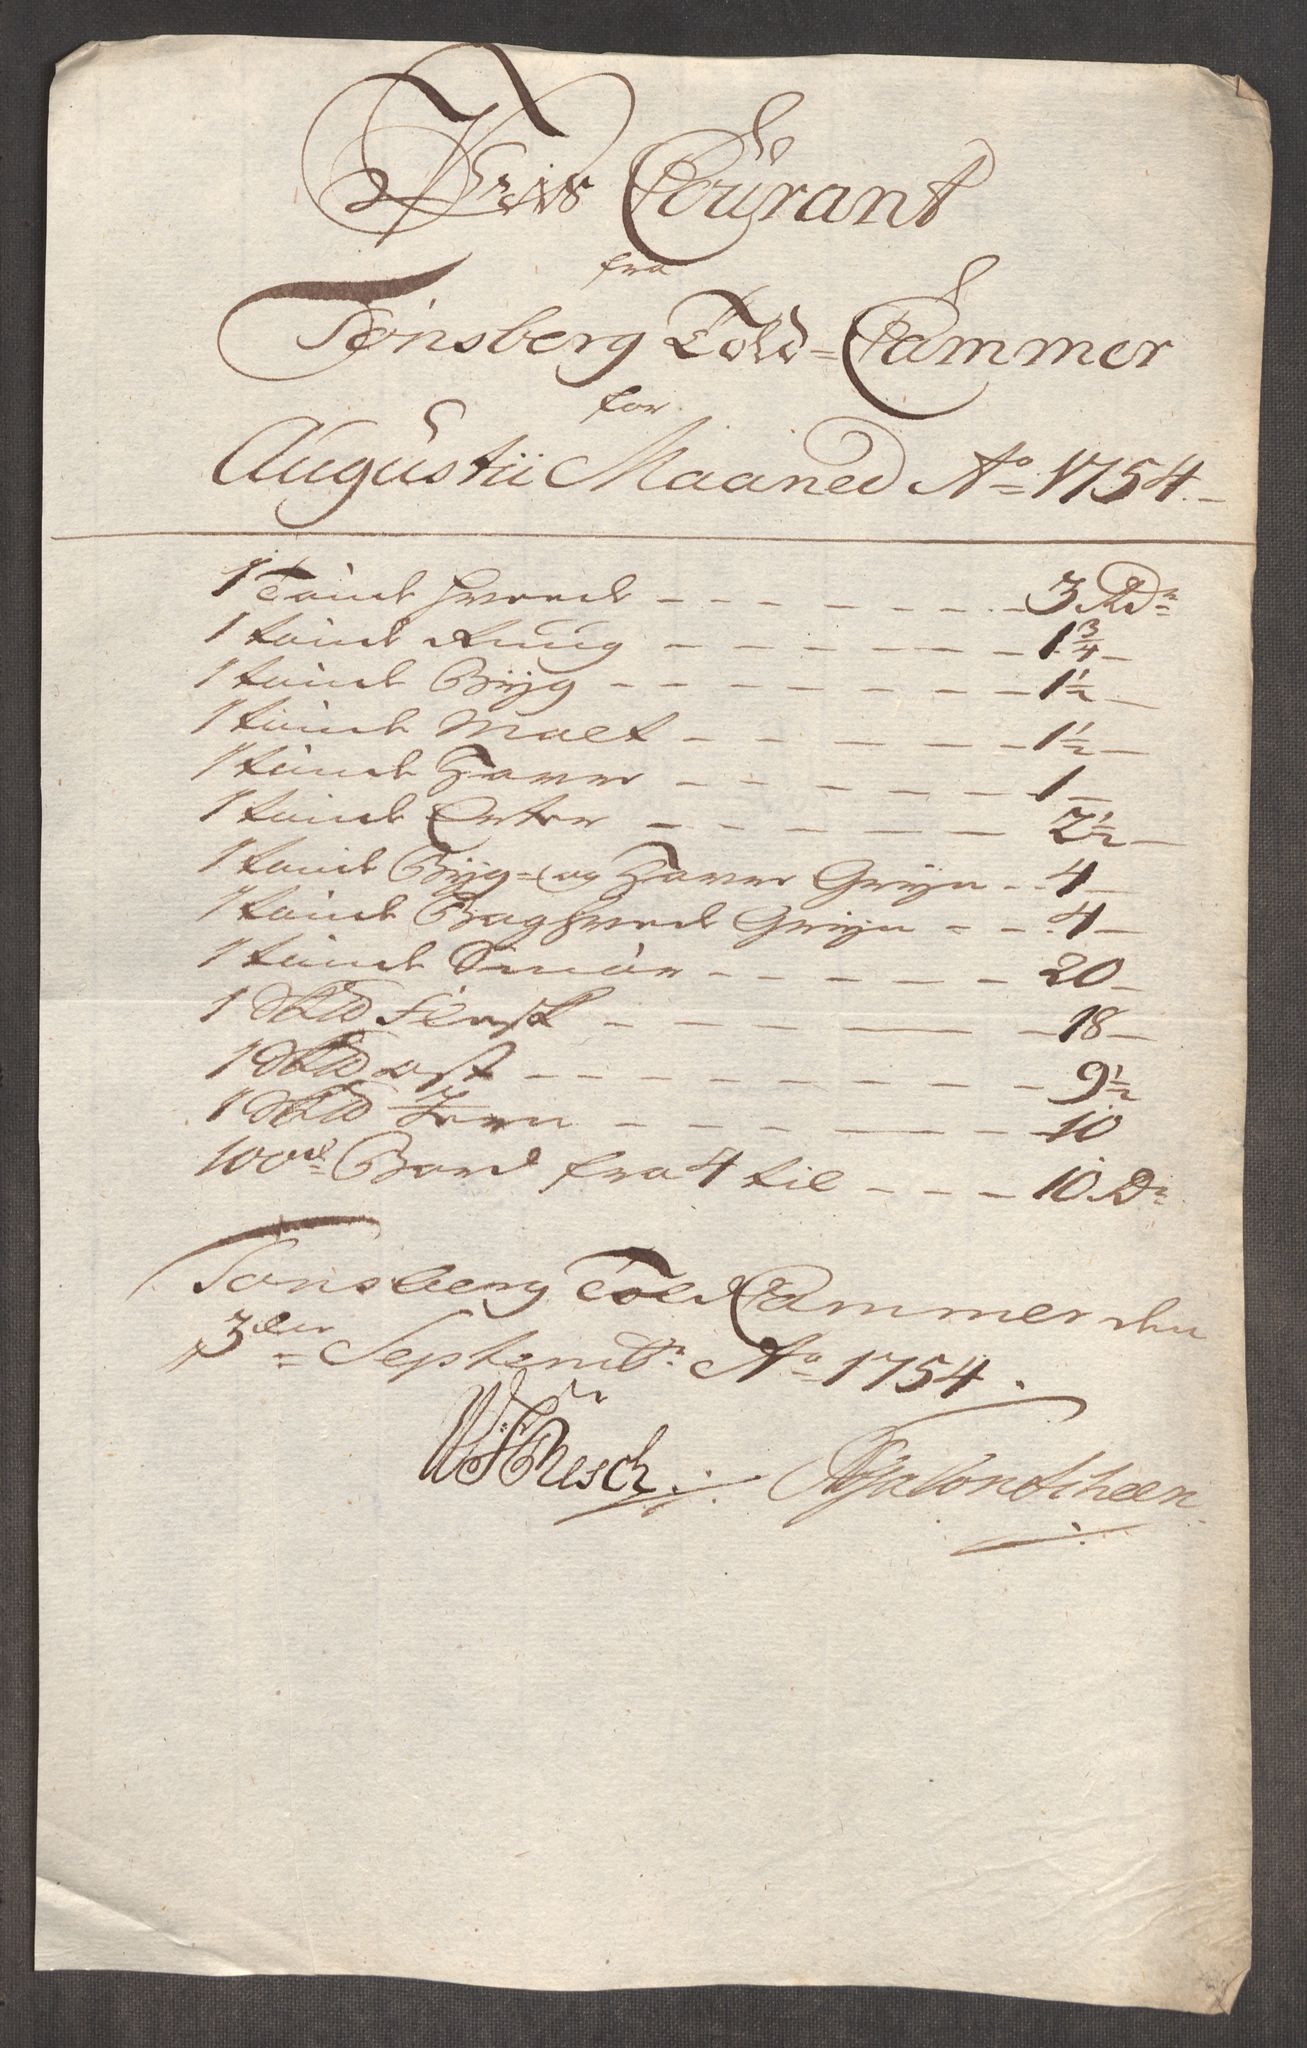 Priis Courant
fra
Tønsberg Told=Cammer
for
Augustii Maaned Ao 1754.
1 Tønde Hvede - - - - - - 3 Rdr
1 tønde Rug - - - - - - 1 3/4 -
1 tønde Byg - - - - - - 1 1/2 -
1 tønde Malt - - - - - 1 1/2 -
1 tønde Haver - - - - - 1 -
1 tønde Erter - - - - - 2 1/2 -
1 tønde Byg- og Haver Gryn - - 4 -
1 tønde Boghvede Gryn - - - 4 -
1 tønde Smør - - - - - 20 -
1 Skd Flesk - - - - - 18 -
1 Skd ost - - - - - - - 9 1/2
1 Skd Jern - - - - - - 10
100de Bord fra 4 til - - - 10 Dr
Tønsberg Told Cammer den
3den Septembr Ao 1754.
Resch